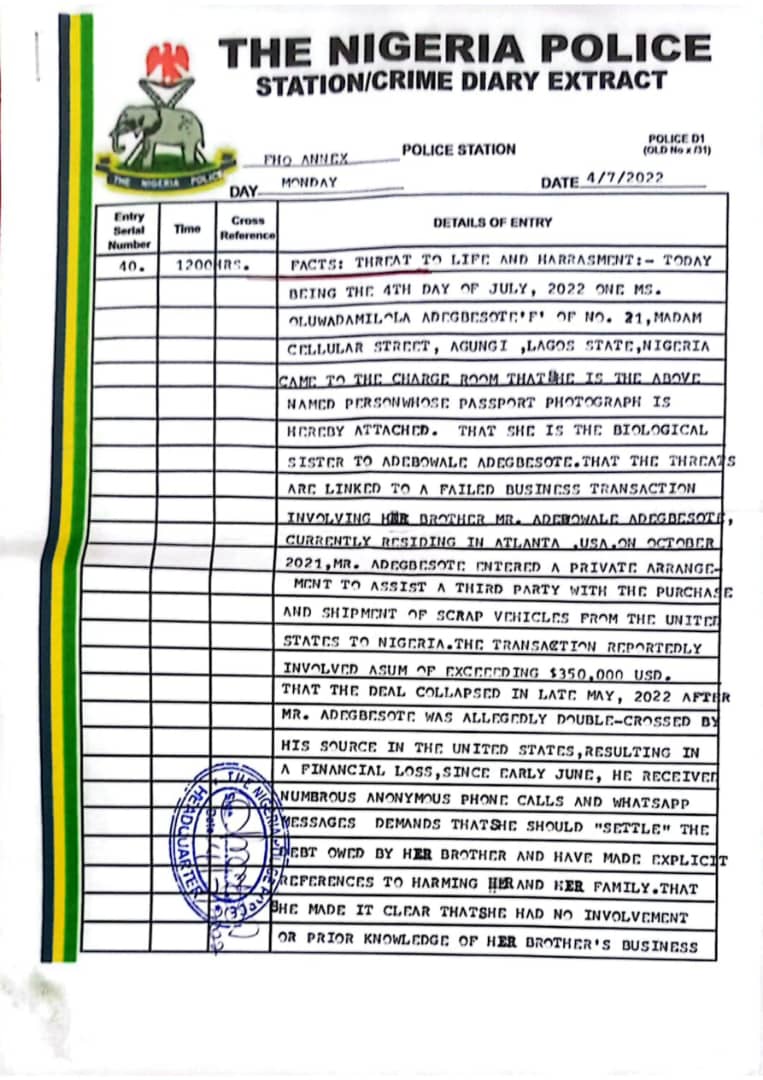 THE NIGERIA POLICE
STATION/CRIME DIARY EXTRACT
THE NIGERIA POLICE
FHQ ANNEX POLICE STATION
POLICE D1
(OLD No x /31)
DAY MONDAY DATE 4/7/2022
Entry Serial Number
Time
Cross Reference
DETAILS OF ENTRY
40. 1200HRS. FACTS: THREAT TO LIFE AND HARRASMENT:- TODAY
BEING THE 4TH DAY OF JULY, 2022 ONE MS.
OLUWADAMILOLA ADEGBESOTE'F' OF NO. 21,MADAM
CELLULAR STREET, AGUNGI ,LAGOS STATE,NIGERIA
CAME TO THE CHARGE ROOM THATSHE IS THE ABOVE
NAMED PERSONWHOSE PASSPORT PHOTOGRAPH IS
HEREBY ATTACHED. THAT SHE IS THE BIOLOGICAL
SISTER TO ADEBOWALE ADEGBESOTE.THAT THE THREATS
ARE LINKED TO A FAILED BUSINESS TRANSACTION
INVOLVING HER BROTHER MR. ADEBOWALE ADEGBESOTE,
CURRENTLY RESIDING IN ATLANTA ,USA.ON OCTOBER
2021,MR. ADEGBESOTE ENTERED A PRIVATE ARRANGE-
MENT TO ASSIST A THIRD PARTY WITH THE PURCHASE
AND SHIPMENT OF SCRAP VEHICLES FROM THE UNITED
STATES TO NIGERIA.THE TRANSACTION REPORTEDLY
INVOLVED ASUM OF EXCEEDING $350,000 USD.
THAT THE DEAL COLLAPSED IN LATE MAY, 2022 AFTER
MR. ADEGBESOTE WAS ALLEGEDLY DOUBLE-CROSSED BY
HIS SOURCE IN THE UNITED STATES,RESULTING IN
A FINANCIAL LOSS,SINCE EARLY JUNE, HE RECEIVED
NUMBROUS ANONYMOUS PHONE CALLS AND WHATSAPP
MESSAGES DEMANDS THATSHE SHOULD "SETTLE" THE
DEBT OWED BY HER BROTHER AND HAVE MADE EXPLICIT
REFERENCES TO HARMING HERAND HER FAMILY.THAT
SHE MADE IT CLEAR THATSHE HAD NO INVOLVEMENT
OR PRIOR KNOWLEDGE OF HER BROTHER'S BUSINESS
THE NIGERIA POLICE FORCE
HEADQUARTER